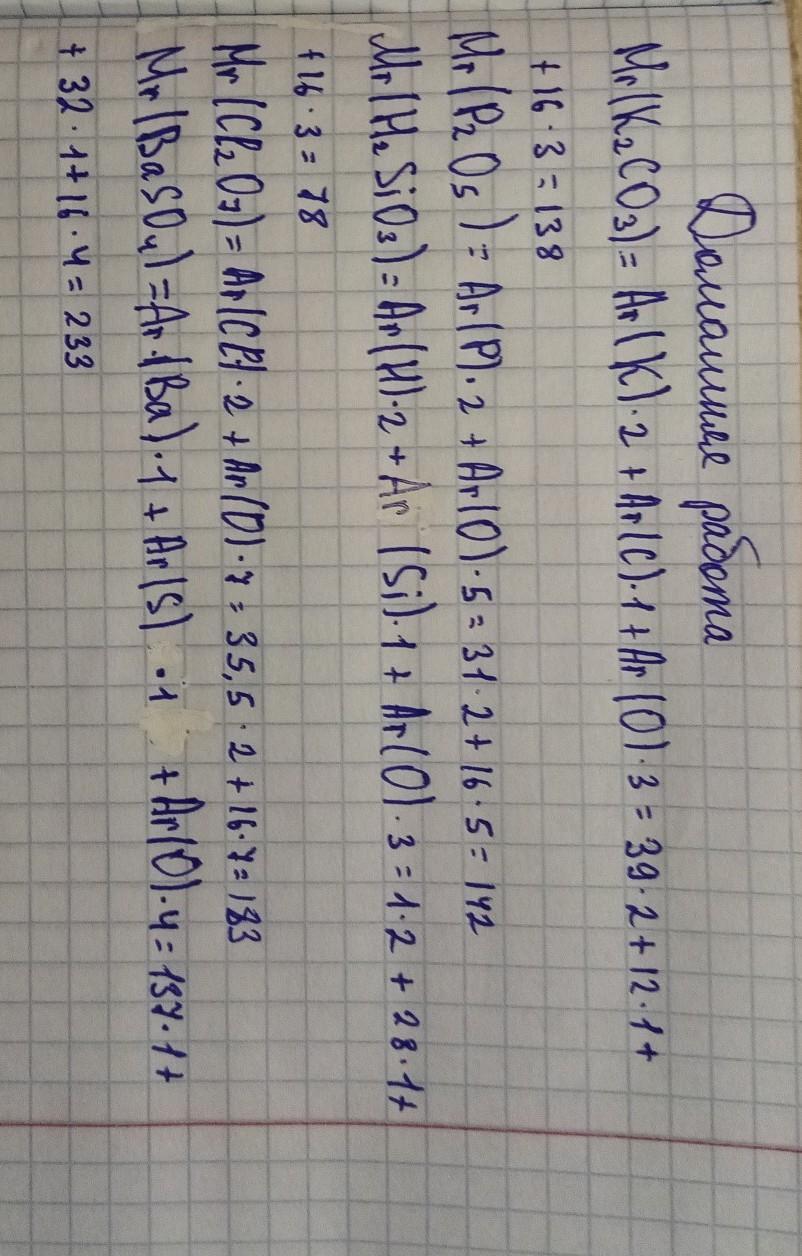 Домашняя работа
Mr(K₂CO₃) = Ar(K)·2 + Ar(C)·1 + Ar(O)·3 = 39·2 + 12·1 +
+ 16·3 = 138
Mr(P₂O₅) = Ar(P)·2 + Ar(O)·5 = 31·2 + 16·5 = 142
Mr(H₂SiO₃) = Ar(H)·2 + Ar(Si)·1 + Ar(O)·3 = 1·2 + 28·1 +
+ 16·3 = 78
Mr(Cl₂O₇) = Ar(Cl)·2 + Ar(O)·7 = 35,5·2 + 16·7 = 183
Mr(BaSO₄) = Ar(Ba)·1 + Ar(S)·1 + Ar(O)·4 = 137·1 +
+ 32·1 + 16·4 = 233